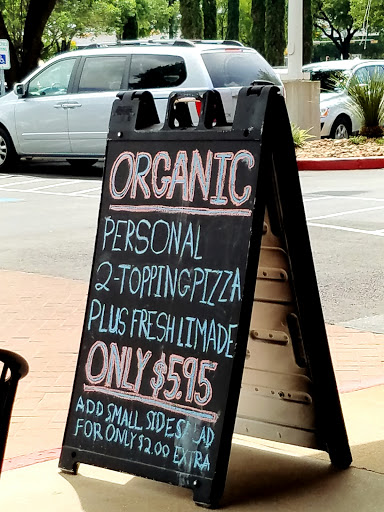 ORGANIC
PERSONAL
2-TOPPING PIZZA
PLUS FRESH LIMADE
ONLY $5.95
ADD SMALL SIDE
FOR ONLY $2.00 EXTRA